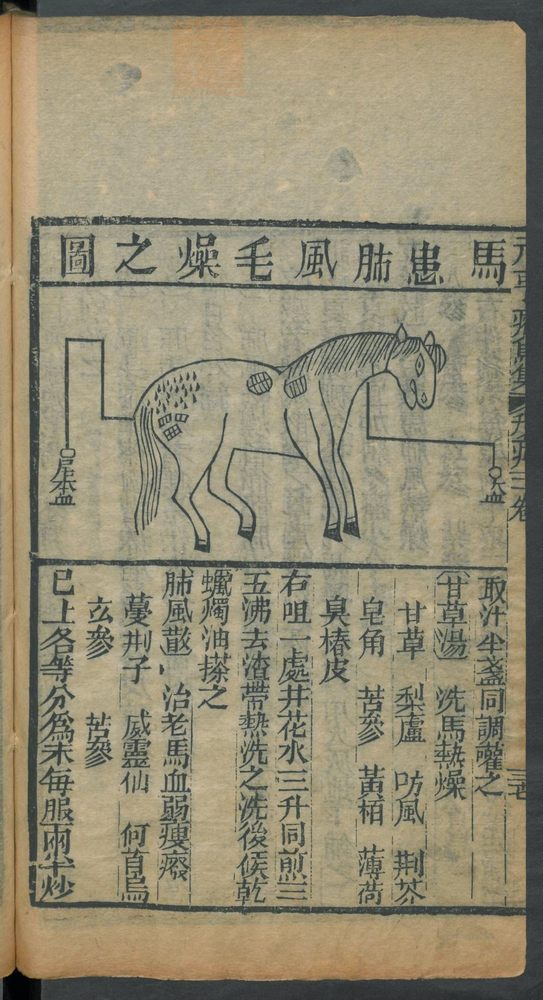 馬患肺風毛燥之圖
尾本血
大血
取汁半盞同調灌之
甘草湯　洗馬熱燥
甘草　梨蘆　防風　荆芥
皂角　苦參　黃栢　薄荷
臭椿皮
右咀一處井花水三升同煎三
五沸去渣帶熱洗之洗後候乾
蠟燭油搽之
肺風散　治老馬血弱瘦瘢
蔓荆子　威靈仙　何首烏
玄參　苦參
已上各等分爲末每服兩半炒